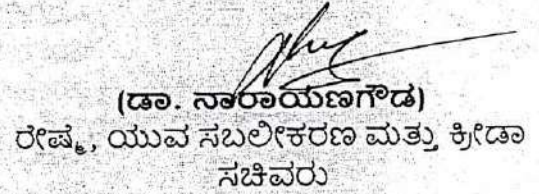 (ಡಾ. ನಾರಾಯಣಗೌಡ)
ರೇಷ್ಮೆ, ಯುವ ಸಬಲೀಕರಣ ಮತ್ತು ಕ್ರೀಡಾ
ಸಚಿವರು